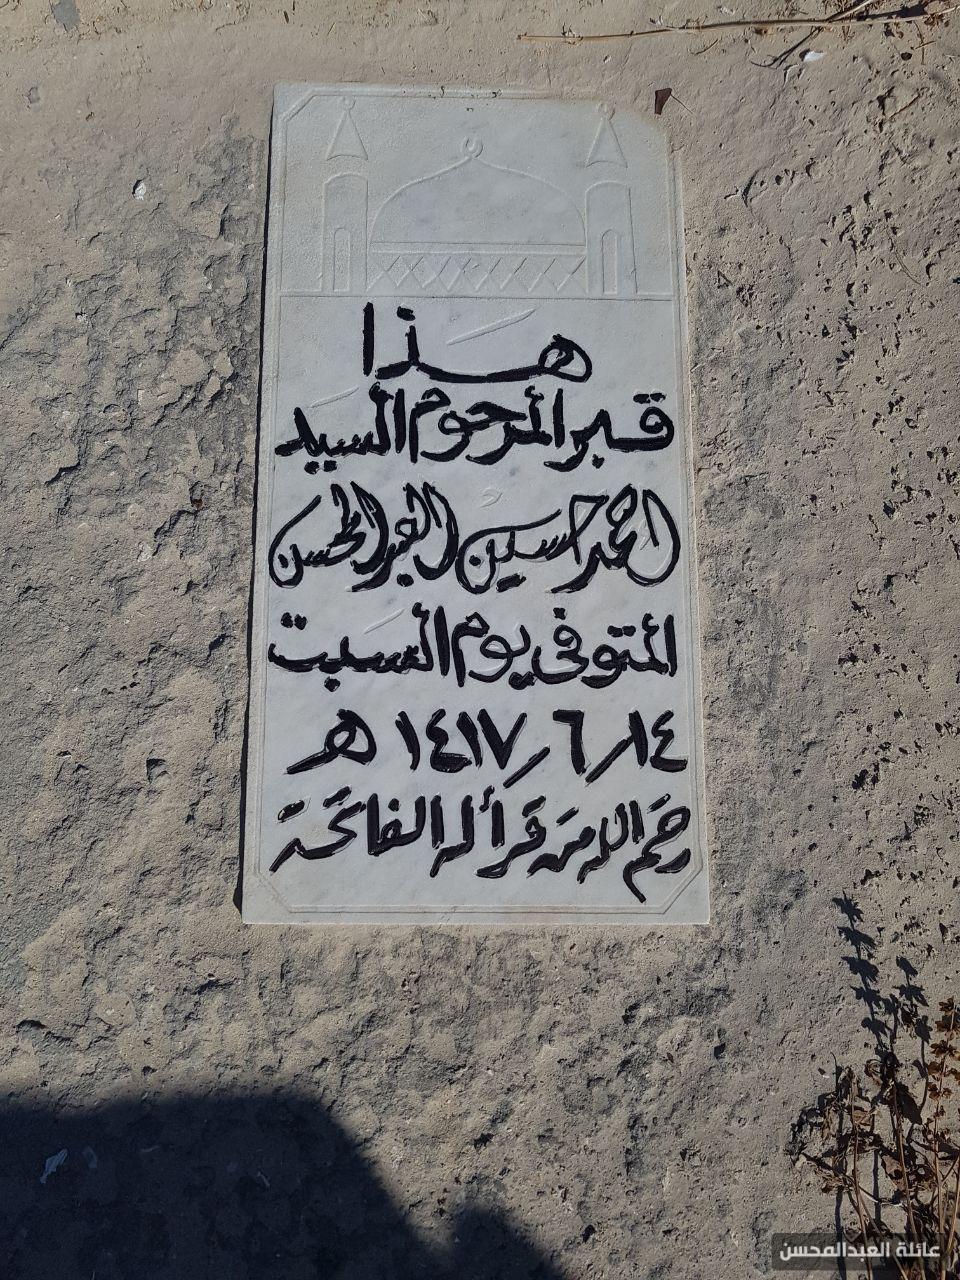 هذا
قبر المرحوم السيد
احمد حسين العبدالمحسن
المتوفى يوم السبت
١٤/٦/١٤١٧ هـ
رحم الله من قرأ له الفاتحة
عائلة العبدالمحسن